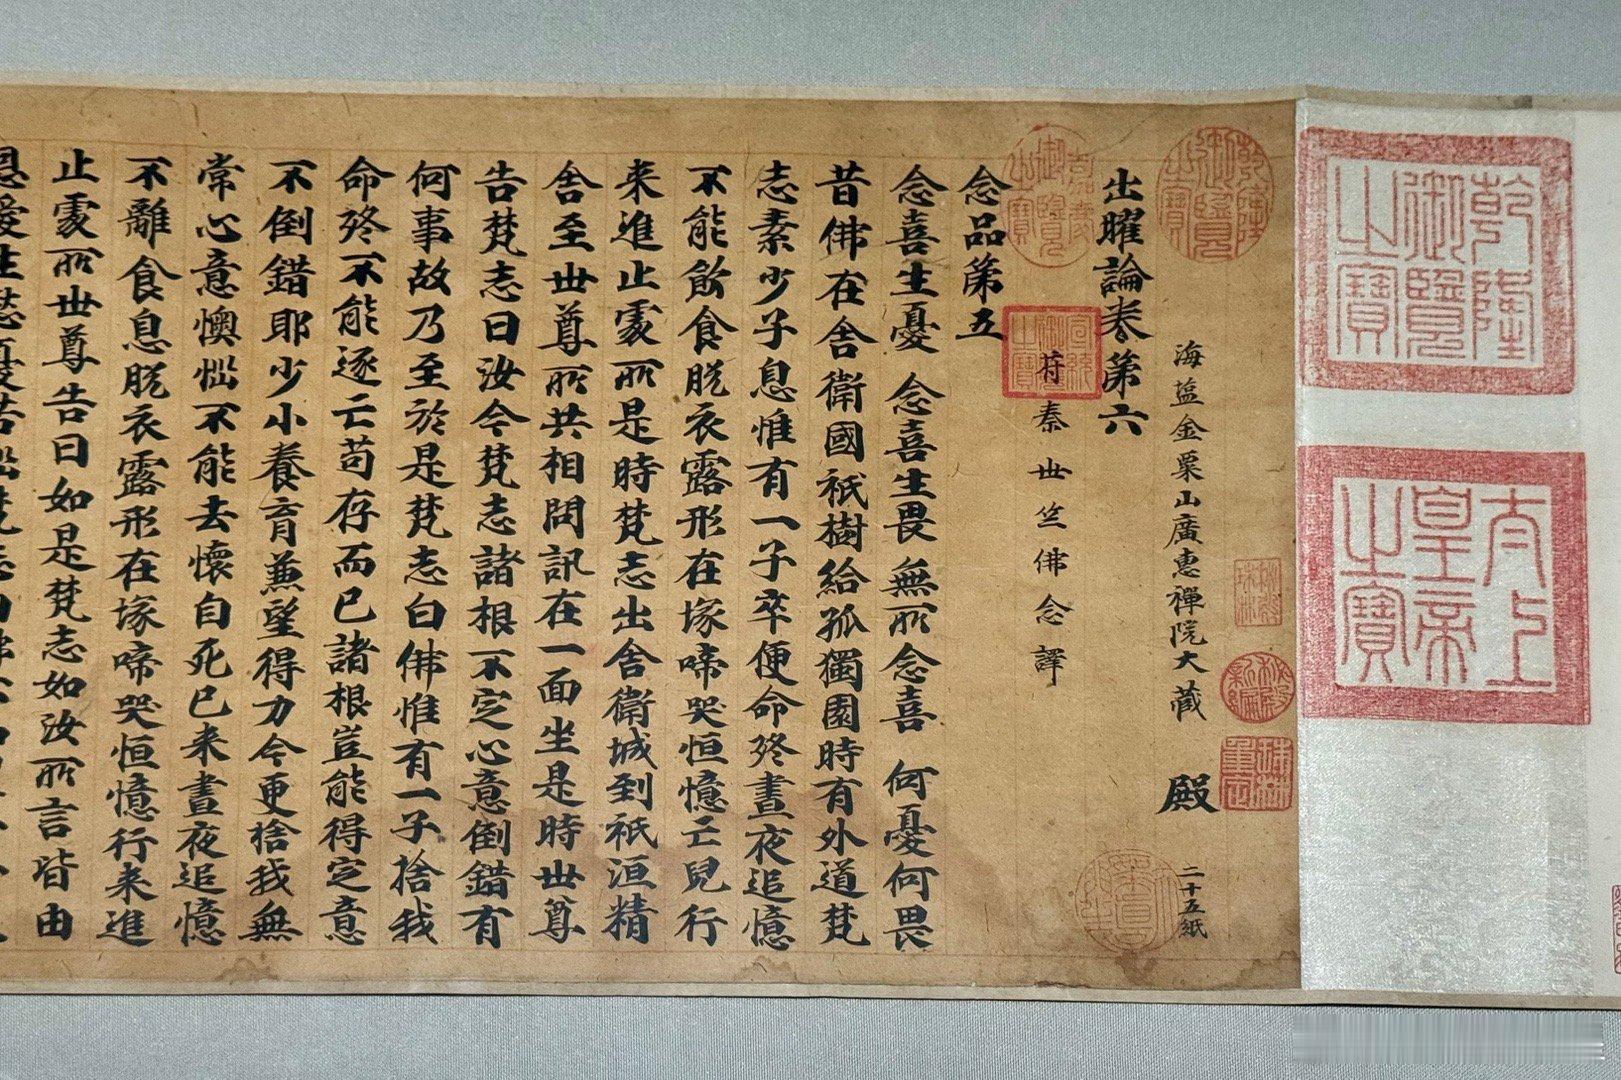 乾隆御覽之寶
太上皇帝之寶
乾隆御覽之寶
海塩金粟山廣惠禪院大藏 殿 二十五紙
秘殿新編
珠林重定
出曜論卷第六
嘉慶御覽之寶
宣統御覽之寶
符秦世竺佛念譯
念品第五
念喜生憂 念喜生畏 無所念喜 何憂何畏
昔佛在舍衛國祇樹給孤獨園時有外道梵
志素少子息惟有一子卒便命終晝夜追憶
不能飲食脫衣露形在塚啼哭恒憶亡兒行
来進止處所是時梵志出舍衛城到祇洹精
舍至世尊所共相問訊在一面坐是時世尊
告梵志曰汝今梵志諸根不定心意倒錯有
何事故乃至於是梵志白佛惟有一子捨我
命終不能逐亡苟存而已諸根豈能得定意
不倒錯耶少小養育兼望得力今更捨我無
常心意懊惱不能去懷自死已来晝夜追憶
不離食息脫衣露形在塚啼哭恒憶行来進
止處所世尊告曰如是梵志如汝所言皆由
恩愛生